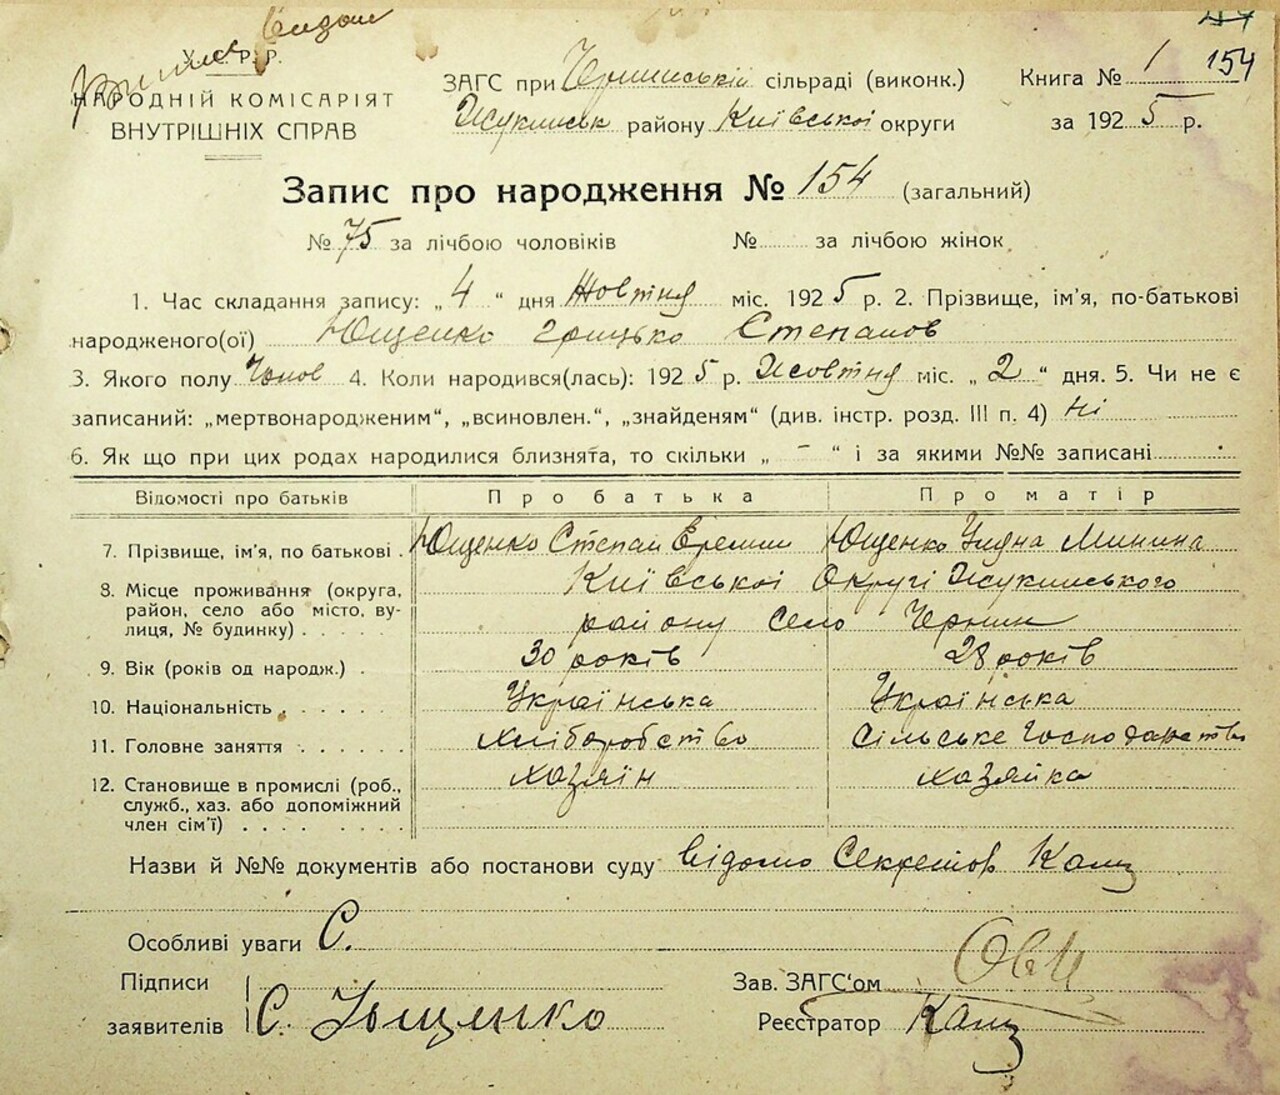 видан
У. С. Р. Р.
НАРОДНІЙ КОМІСАРІЯТ
ВНУТРІШНІХ СПРАВ
ЗАГС при сільраді (виконк.)
району Київської округи
Книга № 1 154
за 1925 р.
Запис про народження № 154 (загальний)
№ 75 за лічбою чоловіків № за лічбою жінок
1. Час складання запису: „4“ дня Жовтня міс. 1925 р. 2. Прізвище, ім'я, по-батькові
народженого(ої) Ющенко Грицько Степанов
3. Якого полу Чолов 4. Коли народився(лась): 1925 р. Жовтня міс. „2“ дня. 5. Чи не є
записаний: „мертвонародженим“, „всиновлен.“, „знайденям“ (див. інстр. розд. III п. 4) Ні
6. Як що при цих родах народилися близнята, то скільки „ – “ і за якими №№ записані
Відомості про батьків Про батька Про матір
7. Прізвище, ім'я, по батькові . Ющенко Степан Ющенко Уляна Минина
8. Місце проживання (округа, район, село або місто, вулиця, № будинку) Київської Округі Жукинського
району село Чернин
9. Вік (років од народж.) . 30 років 28 років
10. Національність Українська Українська
11. Головне заняття Хліборобство Сільське Господарство
12. Становище в промислі (роб., служб., хаз. або допоміжний член сім'ї) хазяїн хазяйка
Назви й №№ документів або постанови суду відомо
Особливі уваги С.
Підписи
заявителів С. Ющенко
Зав. ЗАГС'ом
Реєстратор